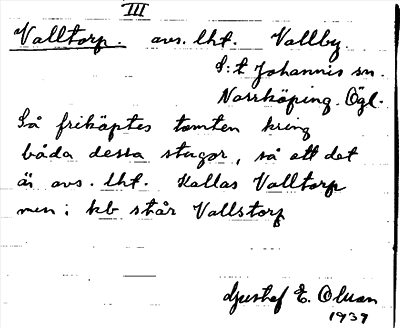 III
Valltorp. avs. lht. Vallby.
S:t Johannis sn.
Norrköping. Ögl.
Så friköptes tomten kring
båda dessa stugor, så att det
är avs. lht. Kallas Valltorp
men i kb står Vallstorp
Gustaf E. Olsson
1937